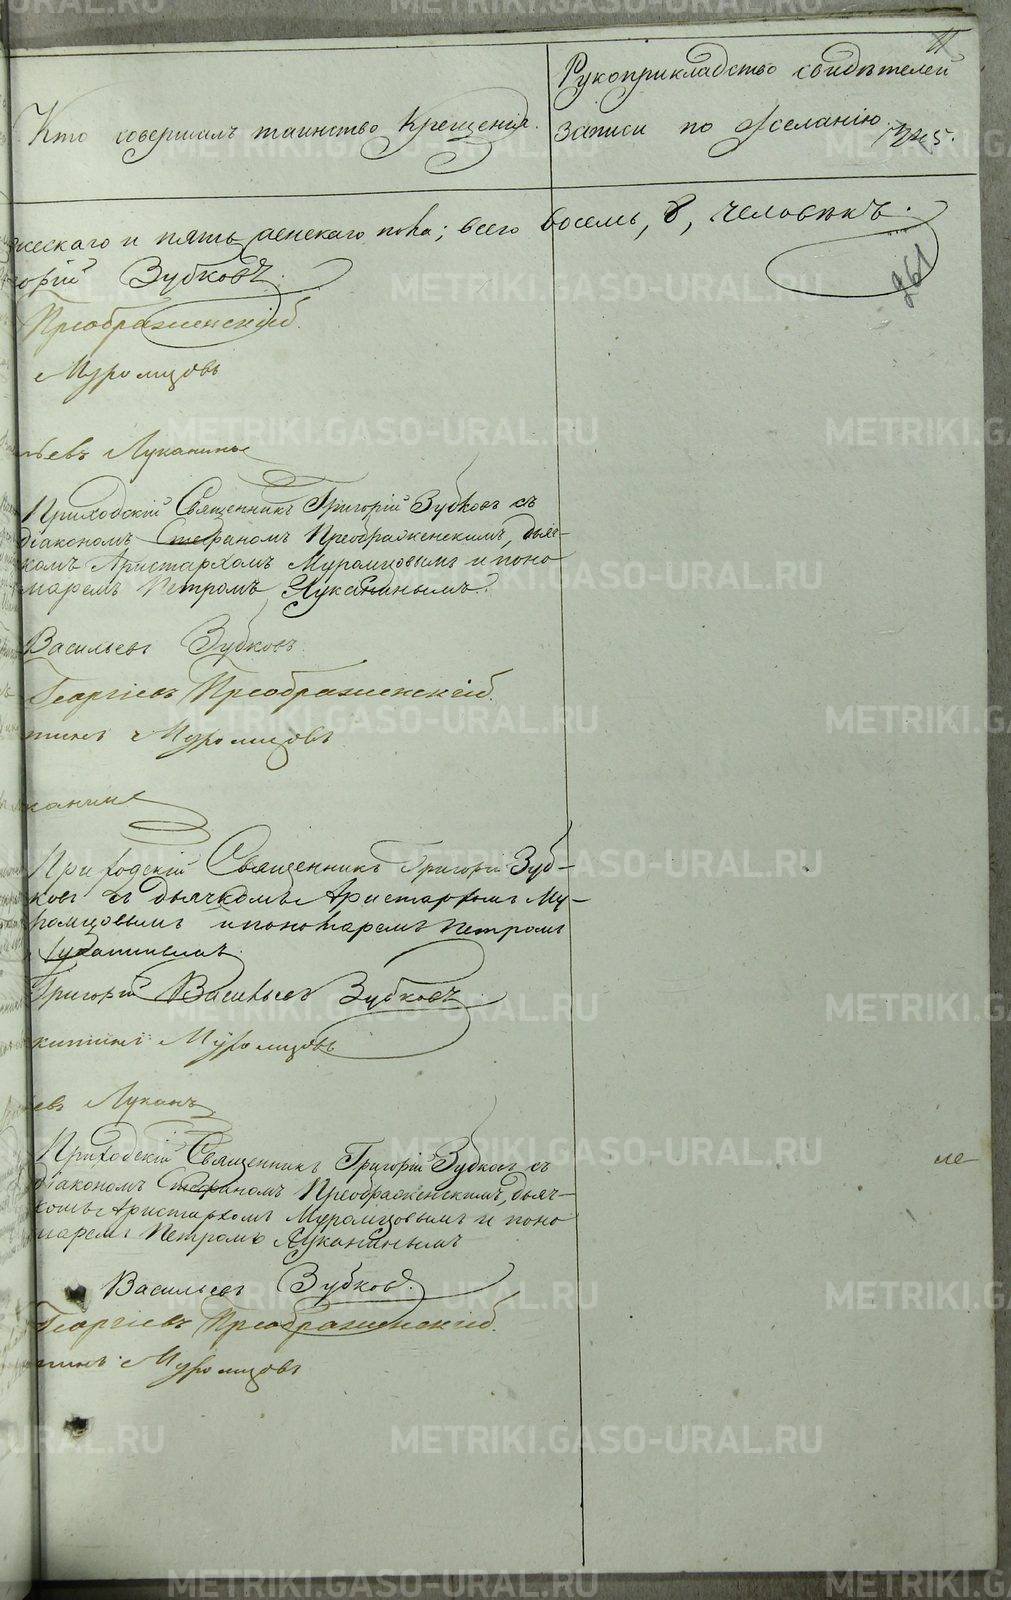 11
Кто совершалъ таинство Крещенія.
Рукоприкладство свидѣтелей
записи по желанію.
1345.
жескаго и пять женскаго пола; всего восемь, 8, человѣкъ.
горій Зубковъ.
261
Преображенскій.
Муромцовъ
льевъ Луканинъ
Приходскій Священникъ Григорій Зубковъ съ
діакономъ Стефаномъ Преображенскимъ, дьяч-
комъ Аристархомъ Муромцовымъ и поно
маремъ Петромъ Луканинымъ.
Васильевъ Зубковъ
Георгіевъ Преображенскій.
тинъ Муромцовъ
канинъ
Приходскій Священникъ Григорій Зуб-
ковъ съ дьячкомъ Аристархомъ Му-
ромцовымъ и пономаремъ Петромъ
Луканинымъ.
Григорій Васильевъ Зубковъ
Муромцовъ
евъ Луканъ
Приходскій Священникъ Григорій Зубковъ съ
діакономъ Стефаномъ Преображенскимъ, дьяч-
комъ Аристархомъ Муромцовымъ и поно
маремъ Петромъ Луканинымъ
ле
Васильевъ Зубковъ.
Георгіевъ Преображенскій.
тинъ Муромцовъ
METRIKI.GASO-URAL.RU